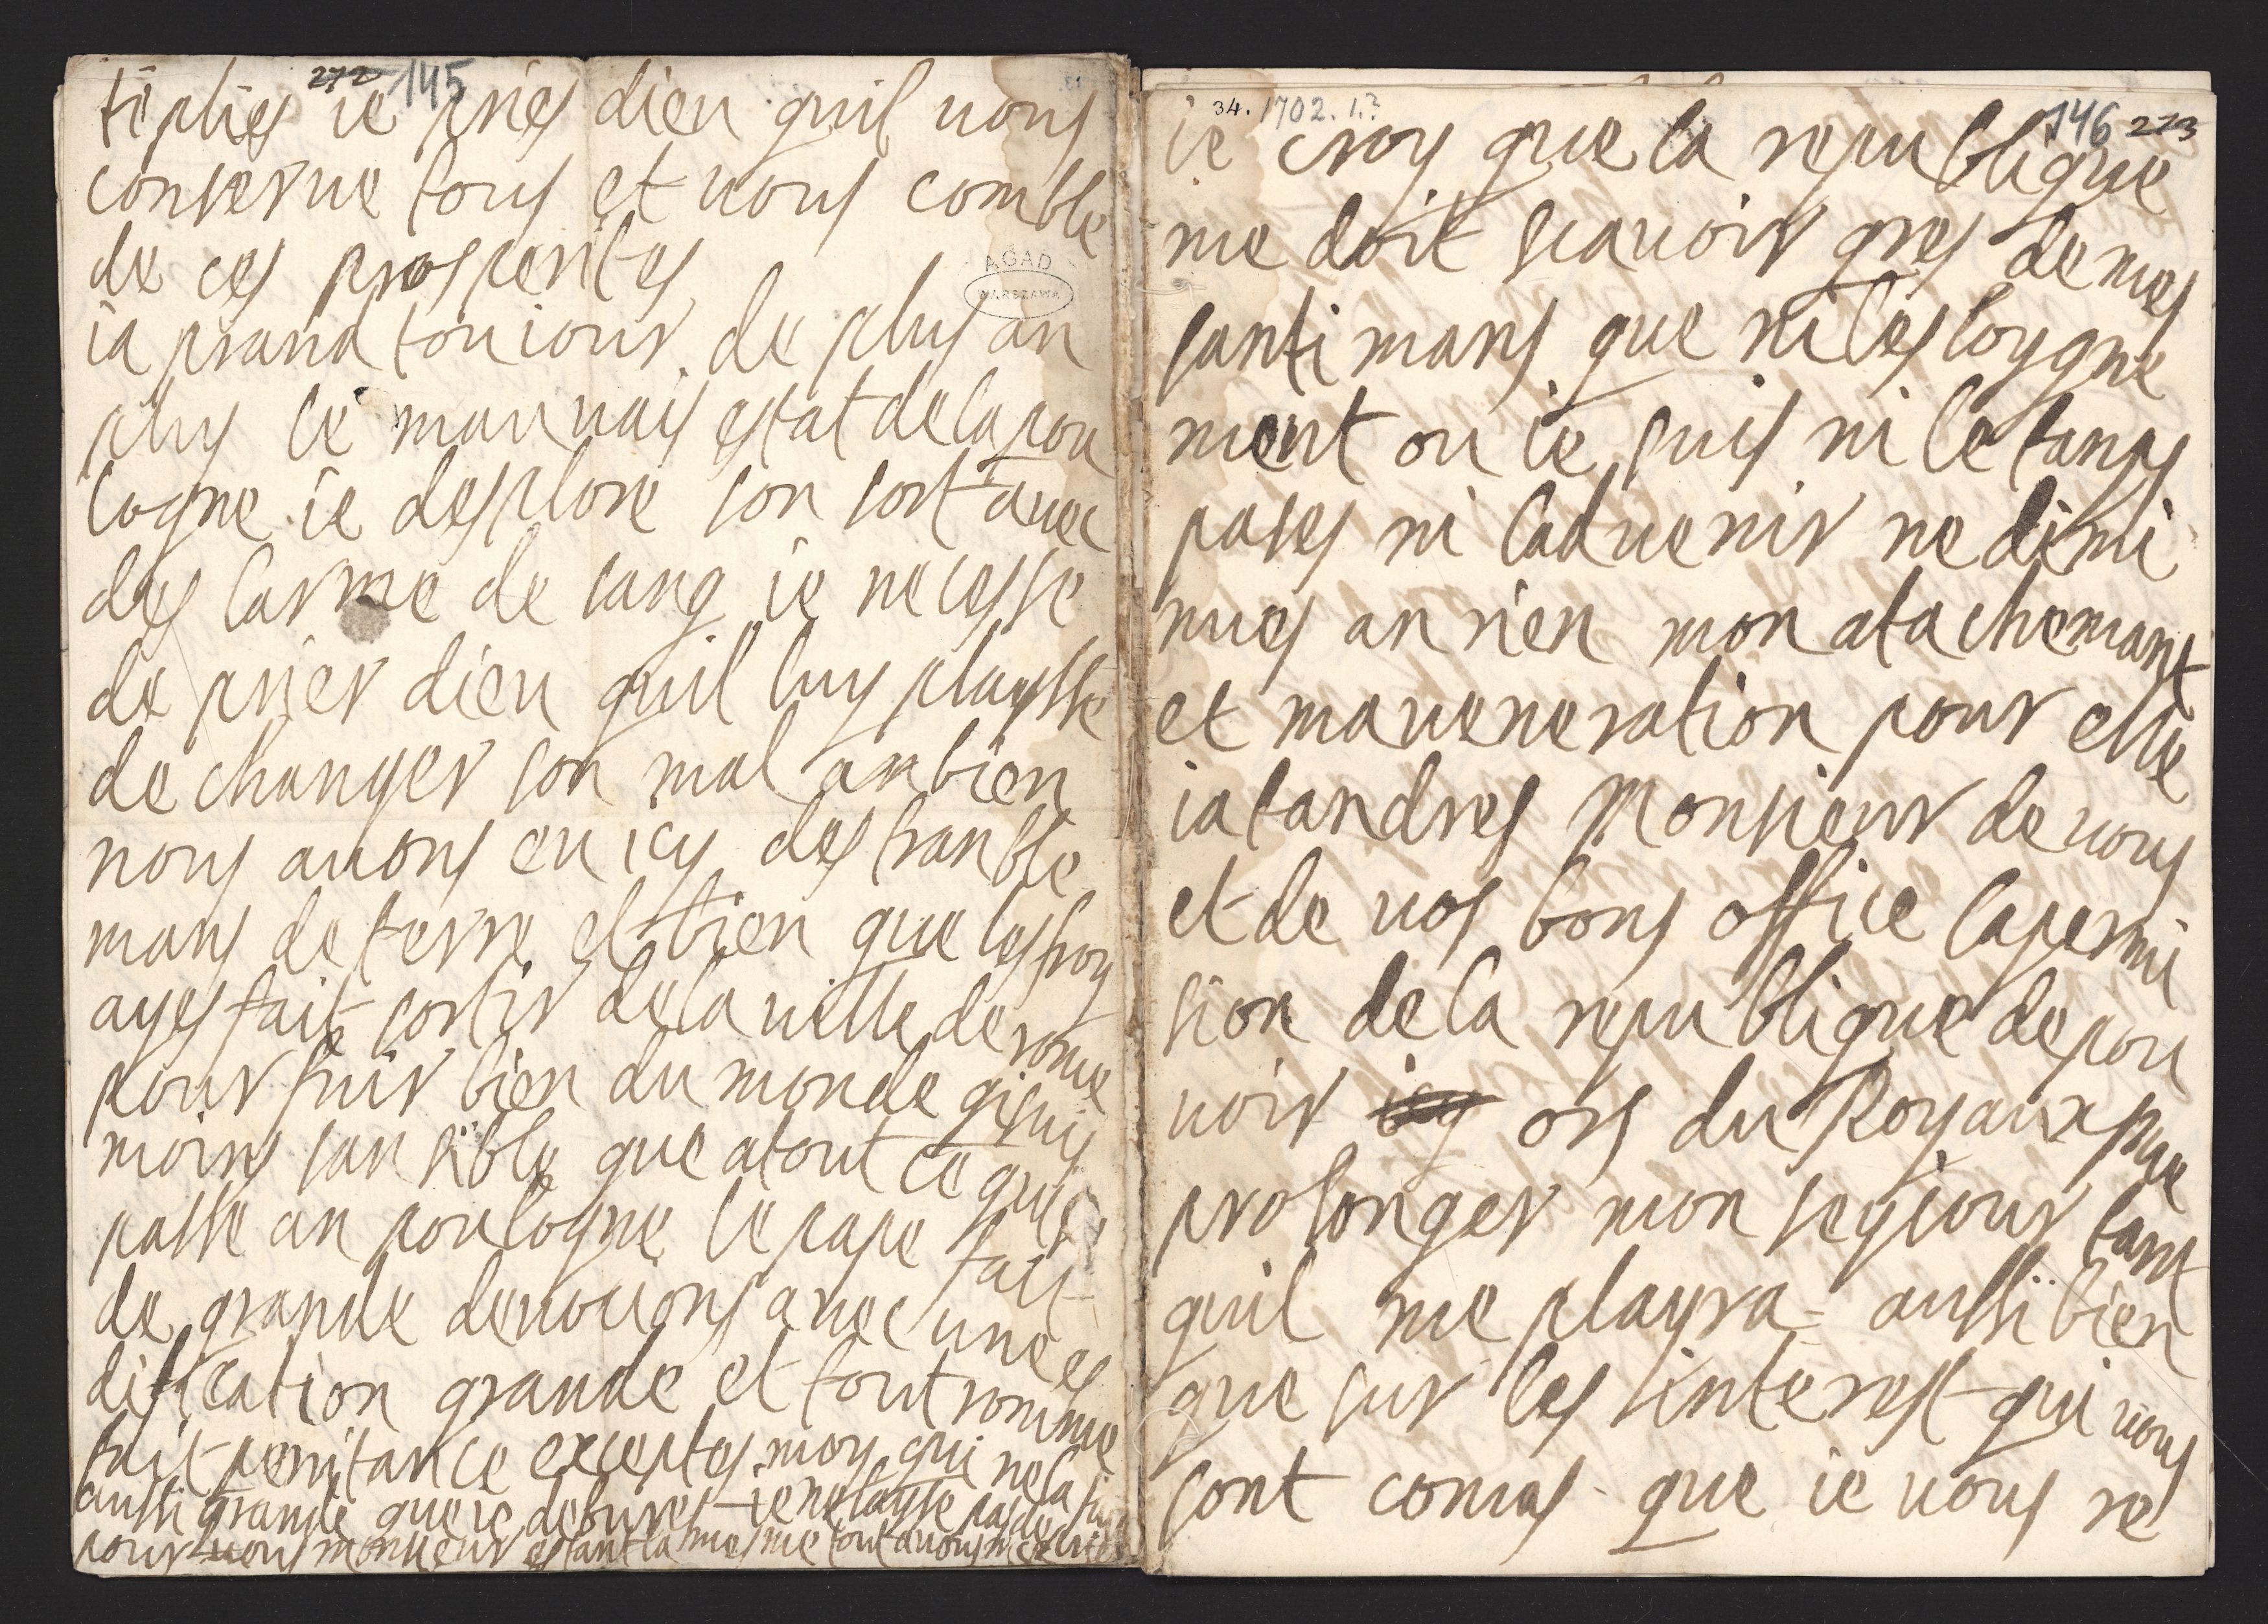 272 145
tiplies ie pries dieu quil uous
conserue tous et uous comble
de ces prosperites
ia prand touiour de plus an
plus le mauuais estat de la pou
logne ie desplore son sort auec
des larme de sang ie ne cesse
de prier dieu quil luy playsse
de changer son mal an bien
nous auons eu icy des tranble
mans de terre et bien que lesfroy
ayes fait sortir de la uille de rome
pour fuir bien du monde gi suis
moins sansible que a tout ce qui se
passe an poulogne le pape fait
de grande deuocions auec une es
dification grande et tout romme
fait penitance exceptes moy qui ne la
aussi grande que ie deburest ie ne laysse pas de
pour uous monsieur estant la mesme tout auous
AGAD
WARSZAWA
34. 1702. I.? 146 273
ie croy que la republique
me doit scauoir gres de mes
santimans que ni lesloygne
ment ou ie suis ni le tamps
pases ni laduenir ne dimi
nues an rien mon atachemant
et maueneration pour elle
iatandres Monsieur de uous
et de uos bons office lapermi
sion de la republique de pou
uoir icy ors du Royaux pme
prolonger mon seyiour tant
quil me playra aussi bien
que sur les sinterest qui uous
sont conus que ie uous re